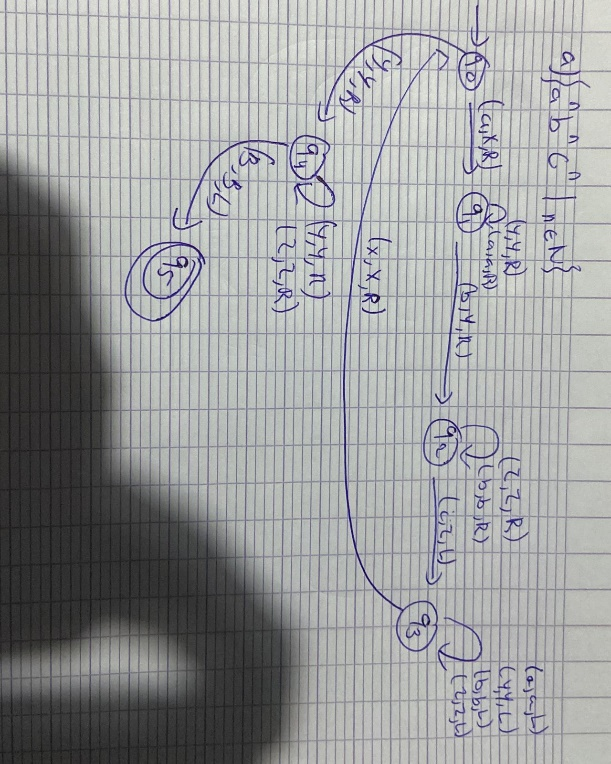 a) {aⁿ bⁿ cⁿ | n ∈ N}
q0
(a,X,R)
(Y,Y,R)
(a,a,R)
q1
(b,Y,R)
(Z,Z,R)
(b,b,R)
q2
(c,Z,L)
(a,a,L)
(Y,Y,L)
(b,b,L)
(Z,Z,L)
q3
(X,X,R)
(Y,Y,R)
q4
(Y,Y,R)
(Z,Z,R)
(B,B,L)
q5